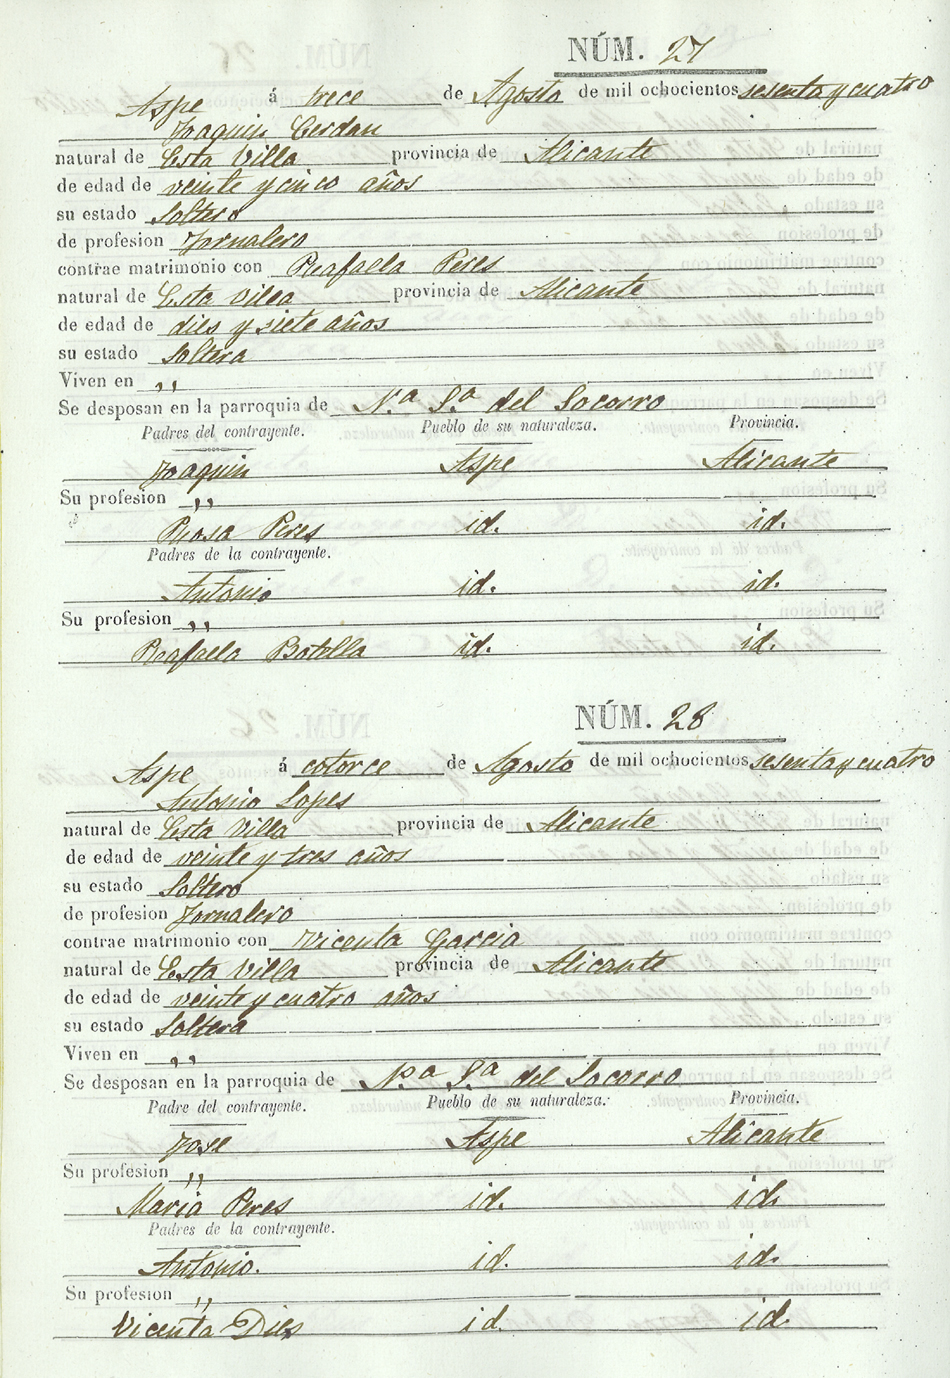 NÚM. 27
Aspe á trece de Agosto de mil ochocientos sesenta y cuatro
Joaquin Cerdan
natural de Esta Villa provincia de Alicante
de edad de veinte y cinco años
su estado Soltero
de profesion Jornalero
contrae matrimonio con Rafaela Peres
natural de Esta Villa provincia de Alicante
de edad de dies y siete años
su estado Soltera
Viven en ,,
Se desposan en la parroquia de N.a S.a del Socorro
Padres del contrayente. Pueblo de su naturaleza. Provincia.
Joaquin Aspe Alicante
Su profesion ,,
Rosa Peres id. id.
Padres de la contrayente.
Antonio id. id.
Su profesion ,,
Rafaela Botella id. id.
NÚM. 28
Aspe á cotorce de Agosto de mil ochocientos sesenta y cuatro
Antonio Lopes
natural de Esta Villa provincia de Alicante
de edad de veinte y tres años
su estado Soltero
de profesion Jornalero
contrae matrimonio con Vicenta Garcia
natural de Esta Villa provincia de Alicante
de edad de veinte y cuatro años
su estado Soltera
Viven en ,,
Se desposan en la parroquia de N.a S.a del Socorro
Padre del contrayente. Pueblo de su naturaleza. Provincia.
Jose Aspe Alicante
Su profesion ,,
Maria Peres id. id.
Padres de la contrayente.
Antonio. id. id.
Su profesion ,,
Vicenta Dies id. id.